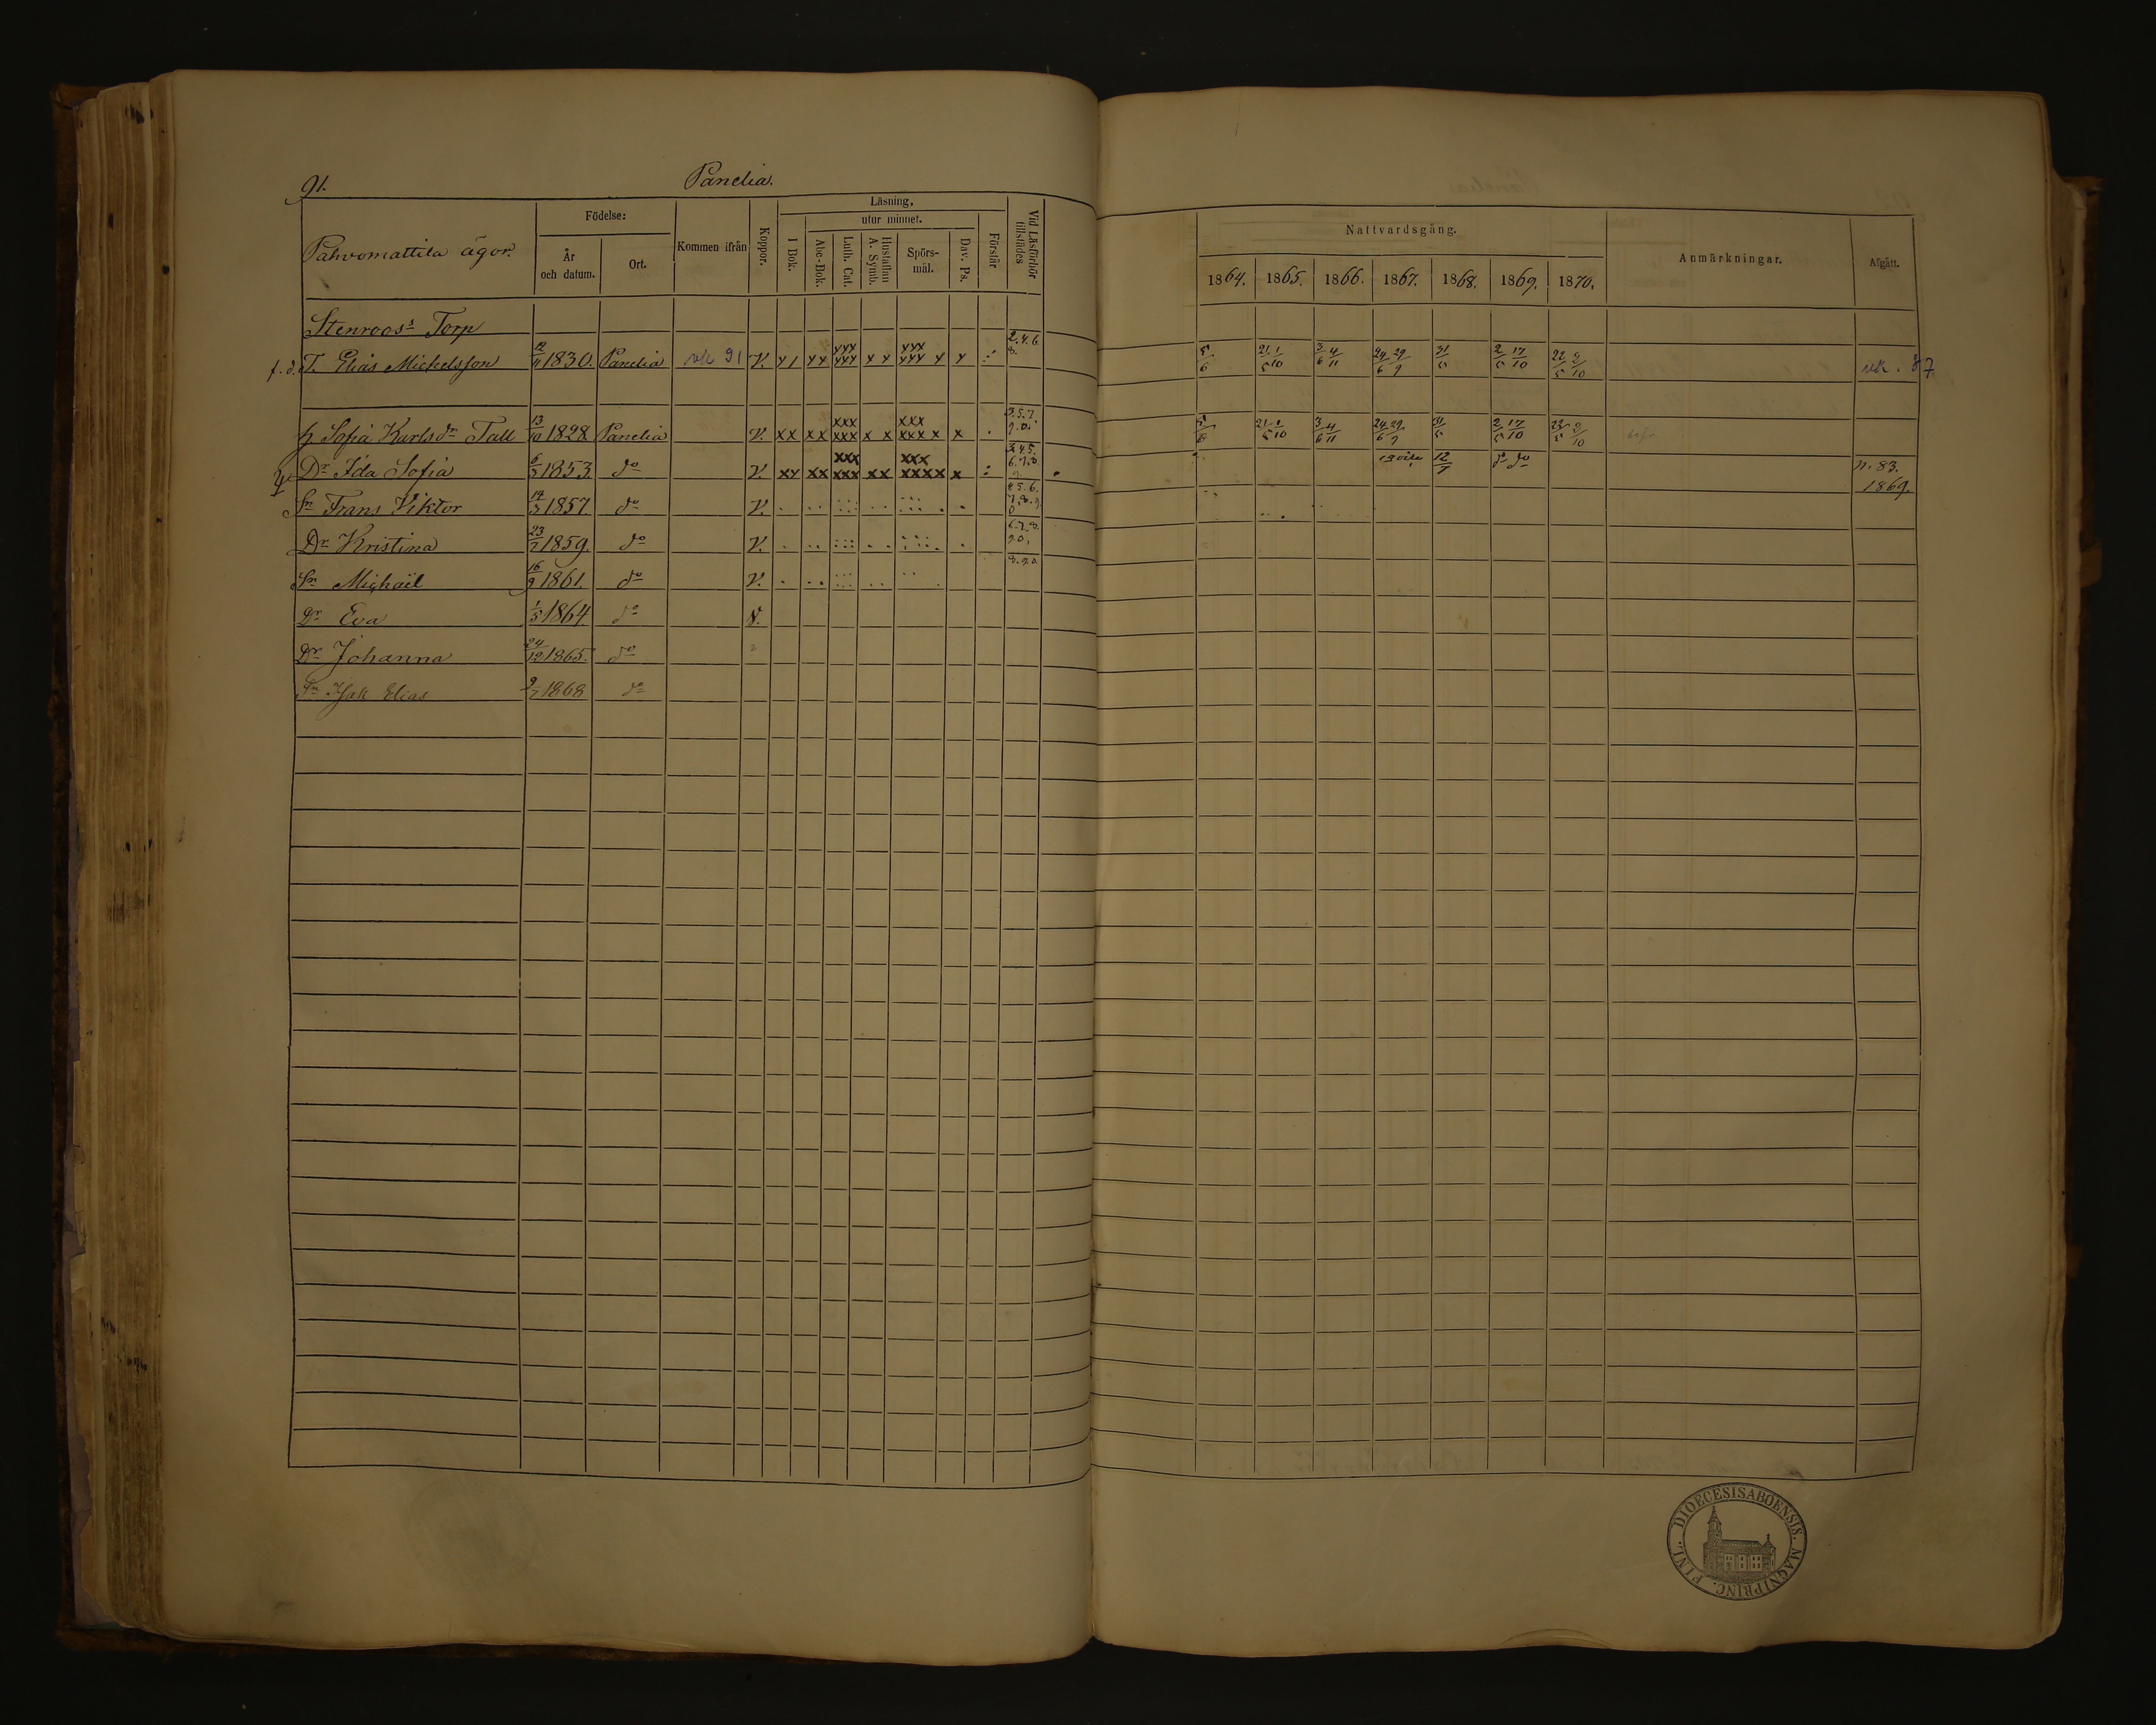 91. Panelia.
Pahvomattila ägor.
Födelse:
År och datum.
Ort.
Kommen ifrån
Koppor.
Läsning,
utur minnet.
I Bok.
Abc-Bok.
Luth. Cat.
Hustaflan A. Symb.
Spörs-mål.
Dav. Ps.
Förstår
Vid Läsförhör tillstädes
Nattvardsgång.
1864. 1865. 1866. 1867. 1868. 1869. 1870.
Anmärkningar.
Afgått.
Stenroos's Torp
f.d. T. Elias Michelsson 12/11 1830. Panelia rk 91 V. 2.4.6. 8. 5/6 21/5 1/10 3/6 4/11 24/6 29/9 31/5 2/5 17/10 22/5 9/10 rk. 87
h Sofia Karlsdr Tall 13/10 1828 Panelia V. xx xx xxx xxx x x xxx xxx x x 3.5.7. 9.0. 5/6 21/5 1/10 3/6 4/11 24/6 29/9 31/5 2/5 17/10 22/5 9/10
Dr Ida Sofia 6/3 1853. do V. 3.4.5. 6.7.8. 12/7 do do n. 83. 1869.
Sn Frans Viktor 14/3 1857. do V. 4.5.6. 7.8.9. 0
Dr Kristina 23/7 1859. do V. 6.7.8. 9.0.
Sn Michaël 16/9 1861. do V. 8.9.0.
Dr Eva 1/5 1864. do V.
Dr Johanna 24/12 1865. do
Sn Isak Elias 9/7 1868 do
FINL. DIOECESIS ABOENSIS. MAGNI PRINC.